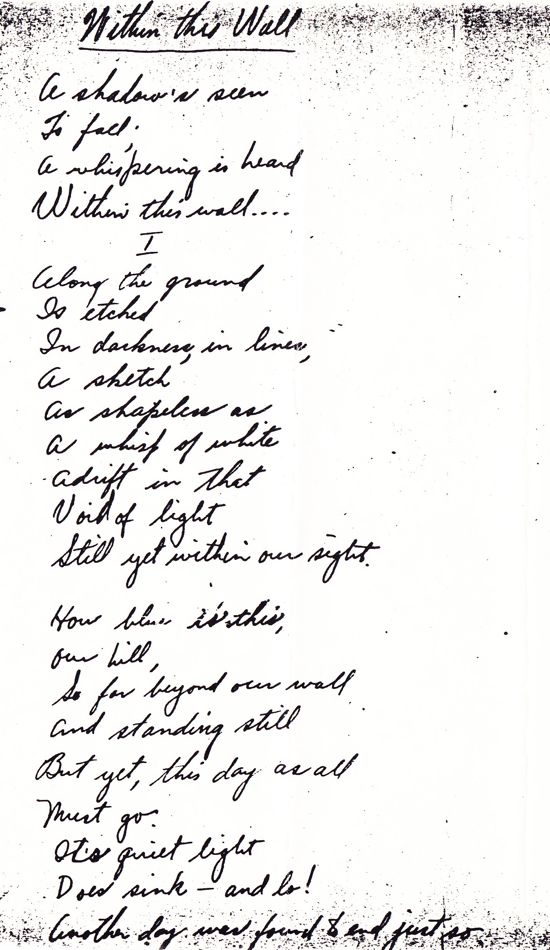 Within this Wall
A shadow's seen
To fall;
A whispering is heard
Within this wall....
I
Along the ground
Is etched
In darkness, in lines,
A sketch
As shapeless as
A whisp of white
Adrift in that
Void of light
Still yet within our sight.
How blue is this,
Our hill,
So far beyond our wall
And standing still
But yet, this day as all
Must go.
It's quiet light
Does sink – and lo!
Another day was found to end just so